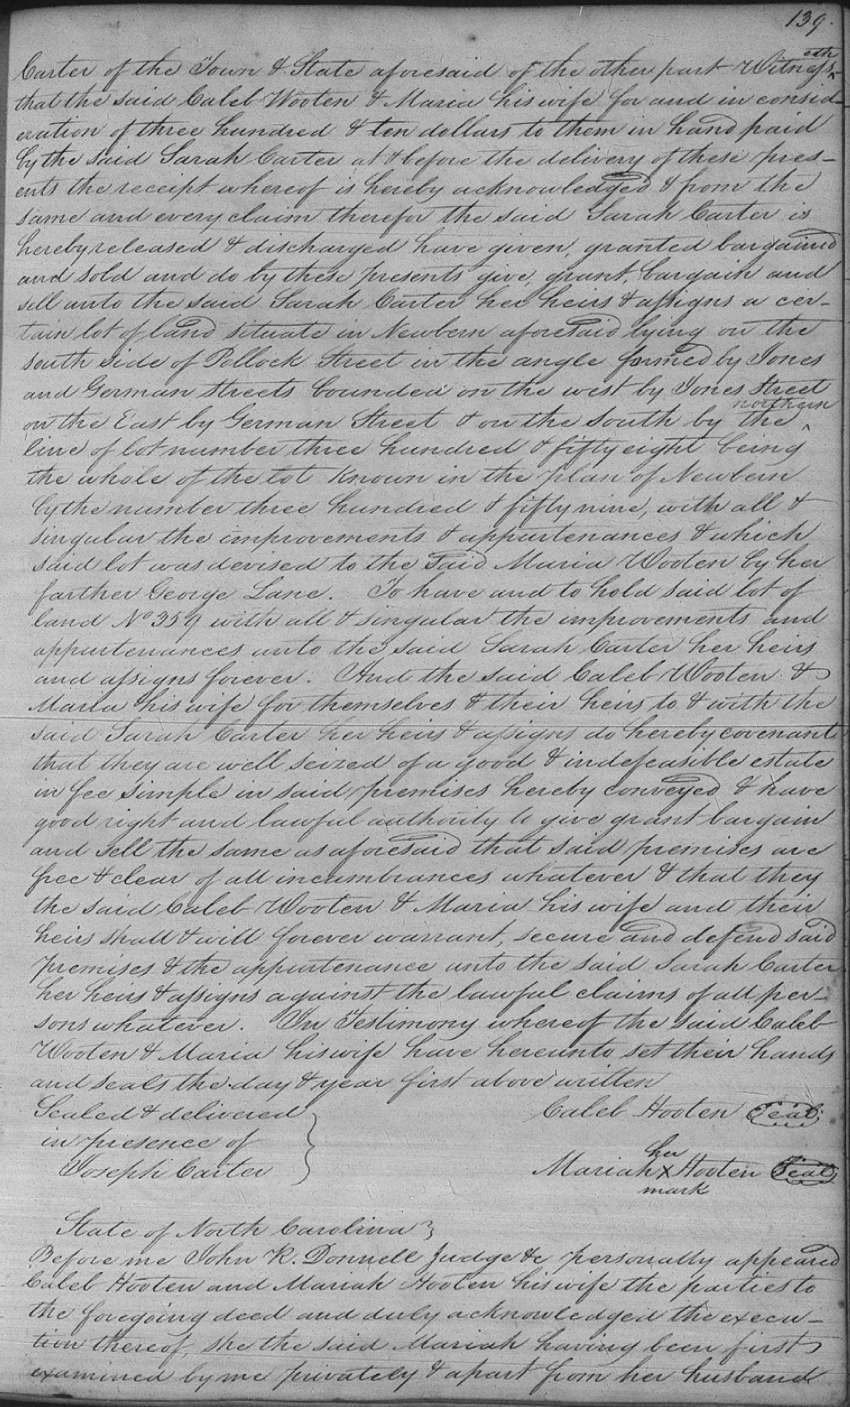 139.
Carter of the Town & State aforesaid of the other part Witnesseth
that the said Caleb Wooten & Maria his wife for and in consid-
eration of three hundred & ten dollars to them in hand paid
by the said Sarah Carter at & before the delivery of these pres-
ents the receipt whereof is hereby acknowledged & from the
same and every claim therefor the said Sarah Carter is
hereby released & discharged have given, granted bargained
and sold and do by these presents give, grant, bargain and
sell unto the said Sarah Carter her heirs & assigns a cer-
tain lot of land situate in Newbern aforesaid lying on the
south side of Pollock Street in the angle formed by Jones
and German streets bounded on the west by Jones Street
on the East by German Street & on the South by the northern
line of lot number three hundred & fifty eight being
the whole of the lot known in the plan of Newbern
by the number three hundred & fifty nine, with all &
singular the improvements & appurtenances & which
said lot was devised to the said Maria Wooten by her
farther George Lane. To have and to hold said lot of
land No 359 with all & singular the improvements and
appurtenances unto the said Sarah Carter her heirs
and assigns forever. And the said Caleb Wooten &
Maria his wife for themselves & their heirs to & with the
said Sarah Carter her heirs & assigns do hereby covenant
that they are well seized of a good & indefeasible estate
in fee simple in said premises hereby conveyed & have
good right and lawful authority to give grant bargain
and sell the same as aforesaid that said premises are
free & clear of all incumbrances whatever & that they
the said Caleb Wooten & Maria his wife and their
heirs shall & will forever warrant, secure and defend said
premises & the appurtenance unto the said Sarah Carter
her heirs & assigns against the lawful claims of all per-
sons whatever. In Testimony whereof the said Caleb
Wooten & Maria his wife have hereunto set their hands
and seals the day & year first above written
Sealed & delivered Caleb Hooten Seal
in presence of
Joseph Carter Mariah her x mark Hooten Seal
State of North Carolina
Before me John R. Donnell Judge &c personally appeared
Caleb Hooten and Mariah Hooten his wife the parties to
the foregoing deed and duly acknowledged the execu-
tion thereof, she the said Mariah having been first
examined by me privately & apart from her husband